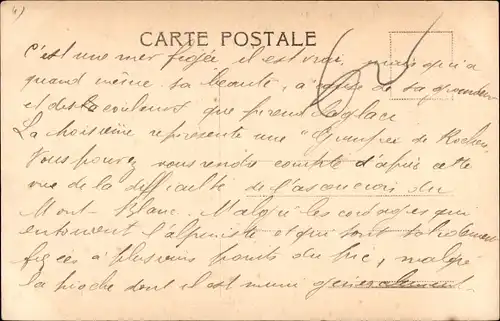 CARTE POSTALE
C'est une mer figée il est vrai, mais qui a
quand même sa beauté, à cause de sa grandeur
et des couleurs que prend la glace
La troisième représente une "Grimpée de Rochers
Vous pouvez vous rendre compte d'après cette
vue de la difficulté de l'ascension du
Mont-Blanc. Malgré les cordages qui
entourent l'alpiniste et qui sont solidement
fixées à plusieurs points du pic, malgré
la pioche dont il est muni généralement